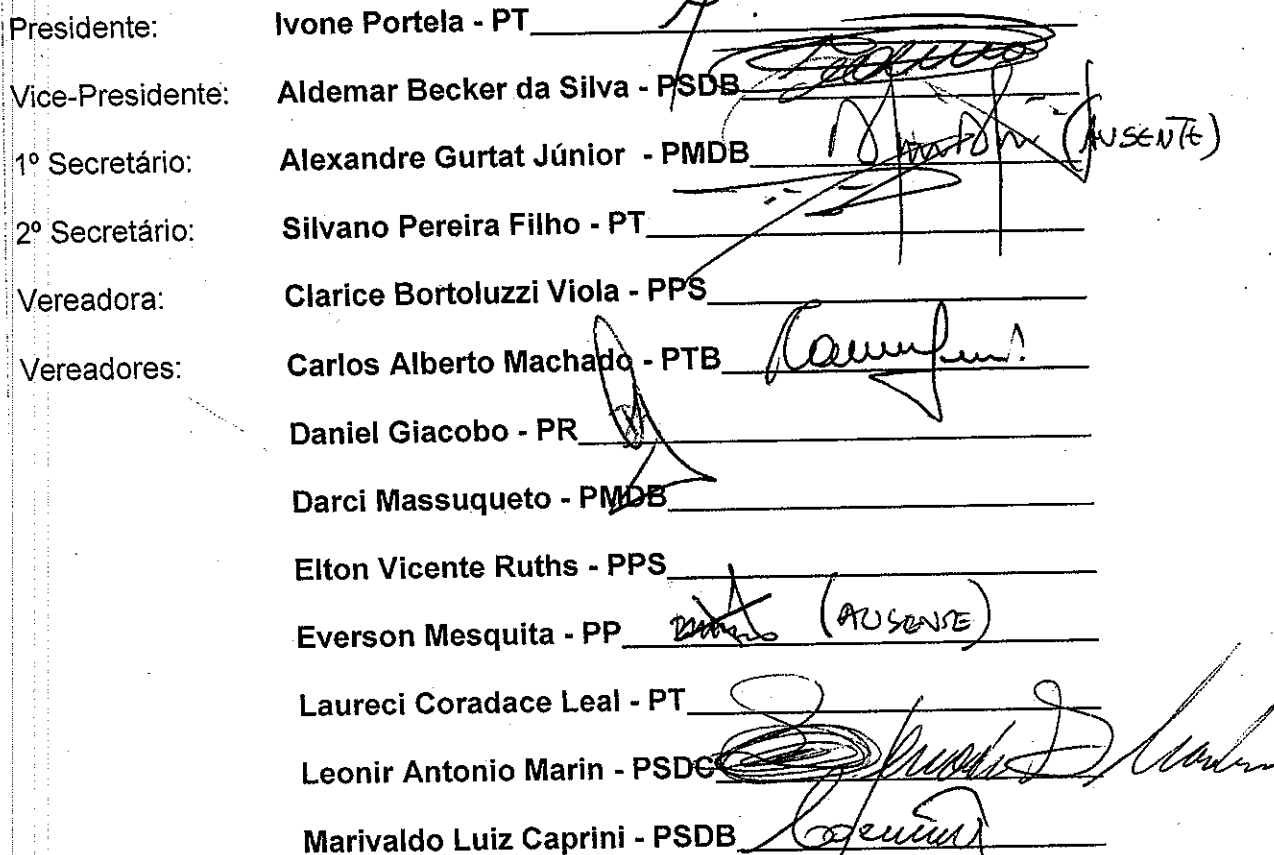 Presidente: Ivone Portela - PT
Vice-Presidente: Aldemar Becker da Silva - PSDB
1º Secretário: Alexandre Gurtat Júnior - PMDB (AUSENTE)
2º Secretário: Silvano Pereira Filho - PT
Vereadora: Clarice Bortoluzzi Viola - PPS
Vereadores: Carlos Alberto Machado - PTB
Daniel Giacobo - PR
Darci Massuqueto - PMDB
Elton Vicente Ruths - PPS
Everson Mesquita - PP (AUSENTE)
Laureci Coradace Leal - PT
Leonir Antonio Marin - PSDC
Marivaldo Luiz Caprini - PSDB